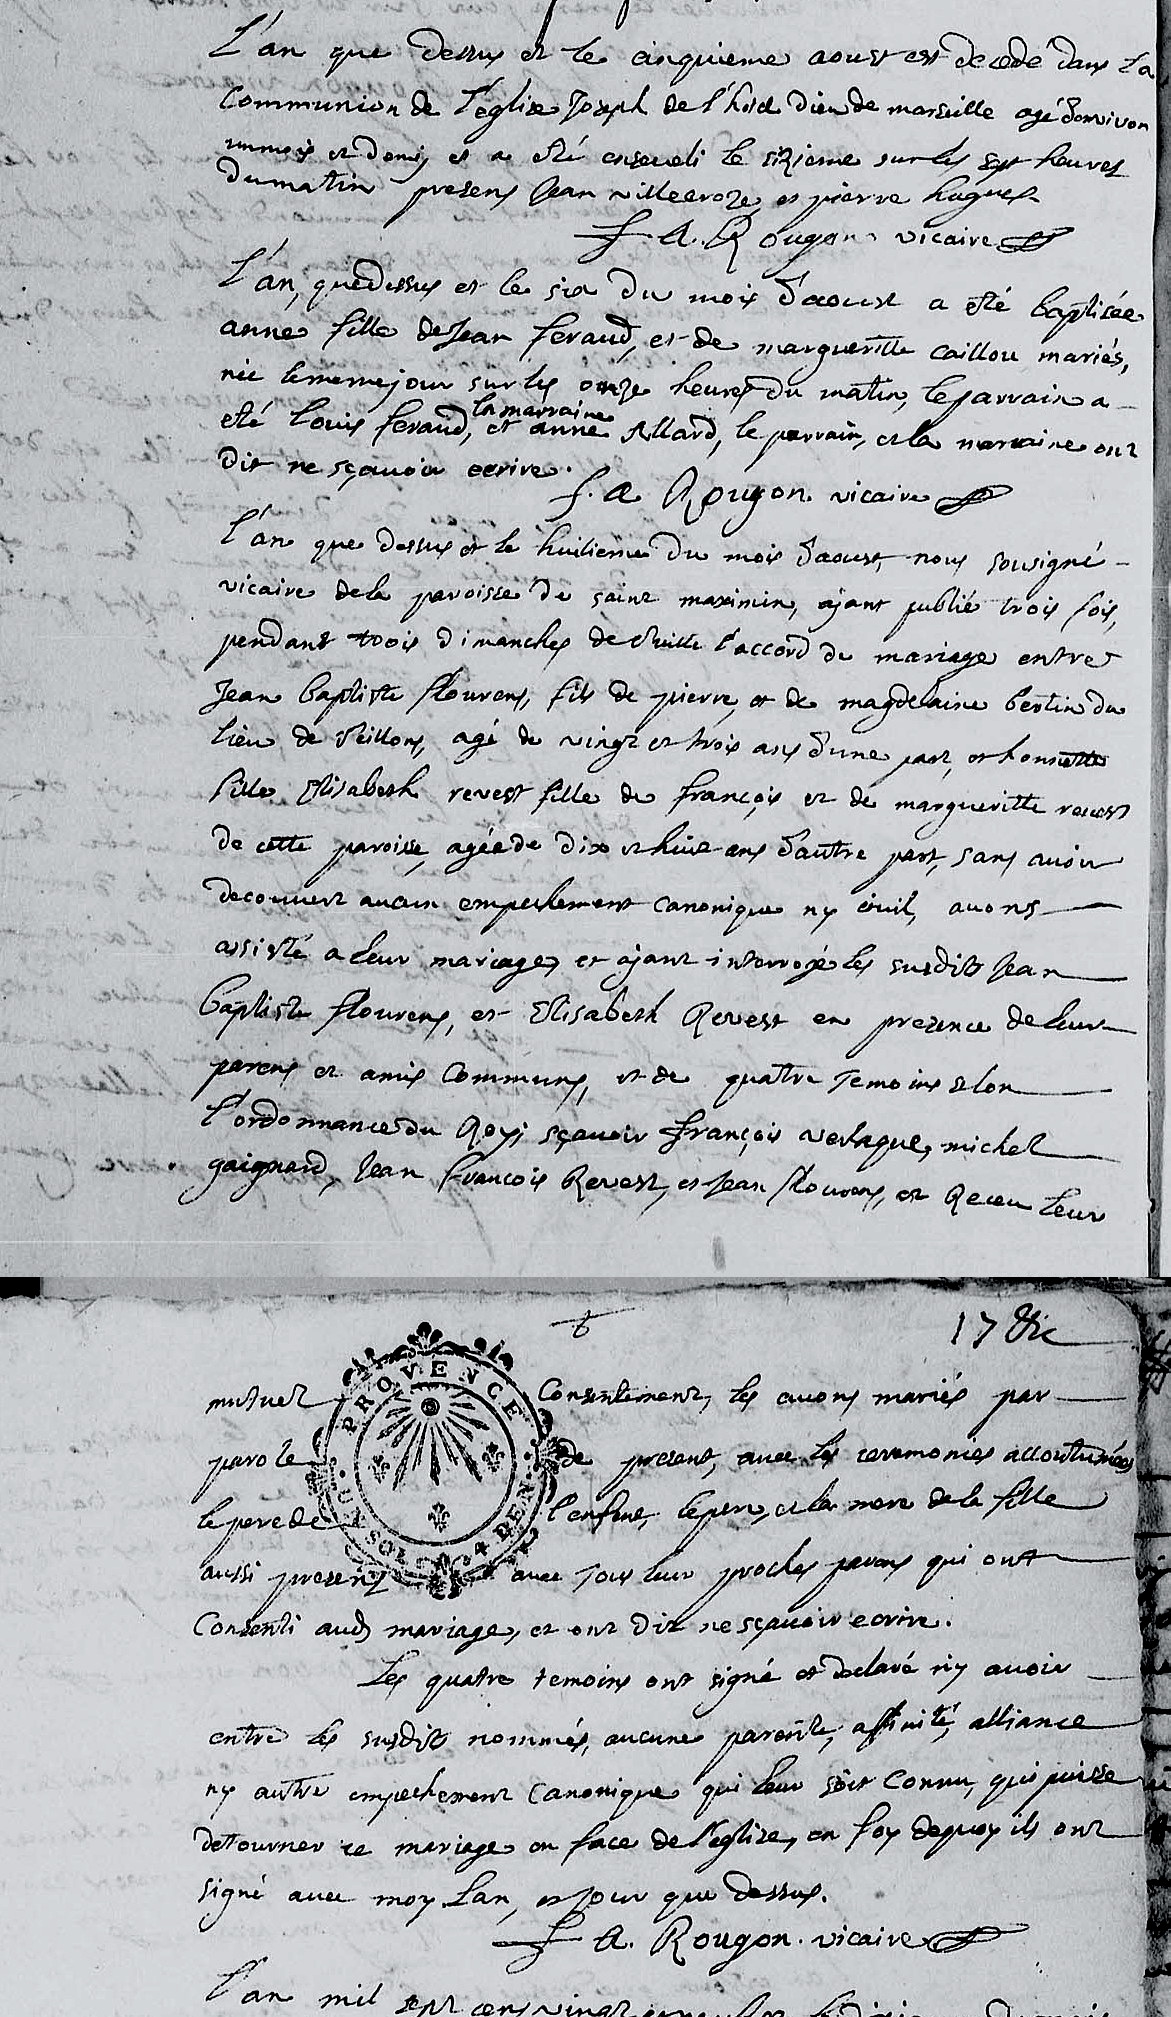 L'an que dessus et le cinquieme aoust est decedé dans la
Communion de l'eglise Joseph de l'hotel Dieu de marseille agé d'environ
un mois et demi et a eté enseveli le sixieme sur les sept heures
du matin presens Jean villecroze et pierre hugues
f. A. Rougon vicaire
L'an que dessus et le six du mois d'aoust a eté baptisée
anne fille de Jean feraud, et de margueritte caillou mariés,
née le meme jour sur les onze heures du matin, le parrain a
eté Louis feraud, et la marraine anne Allard, le parrain, et la marraine ont
dit ne sçavoir ecrire.
f. A Rougon vicaire
L'an que dessus et le huitieme du mois d'aoust, nous sousigné
vicaire de la paroisse de saint maximin, ayant publié trois fois,
pendant trois dimanches de suitte l'accord du mariage entre
Jean baptiste flourens, fils de pierre, et de magdelaine bertin du
lieu de Seillons, agé de vingt et trois ans d'une part, et honnette
fille Elisabeth revest fille de françois et de margueritte revest
de cette paroisse, agée de dix et huit ans d'autre part, sans avoir
decouvert aucun empechement canonique ny civil, avons
assisté a leur mariage, et ayant interrogé les susdits Jean
baptiste flourens, et Elisabeth Revest en presence de leurs
parens et amis communs, et de quatre temoins selon
l'ordonnance du Roy; sçavoir françois verlaque, michel
gaignard, Jean françois Revest, et Jean flourens, et Receu leur
6
17 Dix
mutuel Consentement, les avons mariés par
PROVENCE
parole de present, avec les ceremonies accoutumées
le pere de l'enfant, le pere, et la mere de la fille
SOL 4 DEN
aussi presens avec tous leur proches parens qui ont
Consenti audt mariage, et ont dit ne sçavoir ecrire.
Les quatre temoins ont signé et declaré n'y avoir
entre les susdits nommés, aucune parenté, affinité, alliance
ny autre empechement canonique qui leur soit connu, qui puisse
detourner ce mariage en face de l'eglise, en foy dequoy ils ont
signé avec moy L'an, et jour que dessus.
f A. Rougon. vicaire
L'an mil sept cens vingt